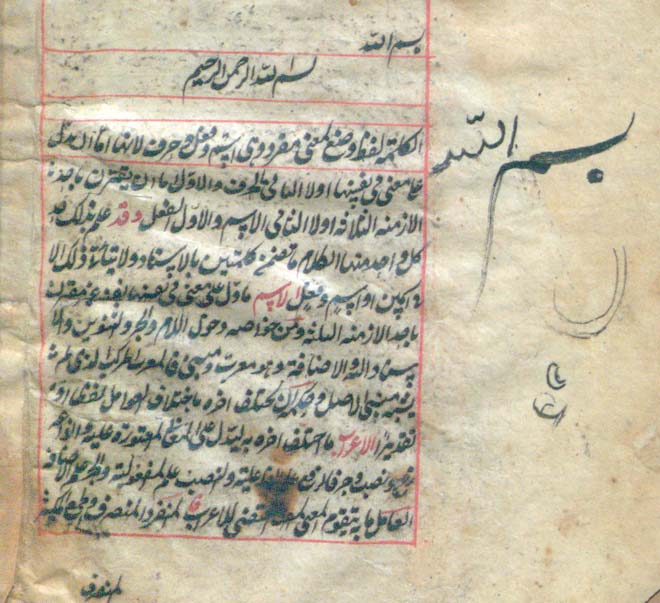 بسم الله
بسم الله الرحمن الرحيم
بسم الله
الكلمة لفظ وضع لمعنى مفرد وهى اسم وفعل وحرف لانها اما ان تدل
على معنى فى نفسها اولا الثانى الحرف والاول اما ان يقترن باحد
الازمنه الثلاثه اولا الثانى الاسم والاول الفعل وقد علم بذلك حد
كل واحد منها الكلام ما تضمن كلمتين بالاسناد ولا يتأتى ذلك الا
فى اسمين او اسم وفعل الاسم ما دل على معنى فى نفسه غير مقترن
باحد الازمنه الثلثه ومن خواصه دخول اللام والجر والتنوين والا
سناد اليه والاضافة وهو معرب ومبنى فالمعرب المركب الذى لم
يشبه مبنى الاصل وحكمه ان يختلف اخره باختلاف العوامل لفظا او
تقديرا الاعراب ما اختلف اخره به ليدل على المعانى المعتورة عليه وانواعه
رفع ونصب وجر فالرفع علم الفاعلية والنصب علم المفعولية والجر علم الاضافة
العامل ما به يتقوم المعنى المقتضى للاعراب فالمفرد المنصرف والجمع المكسر
المنصرف